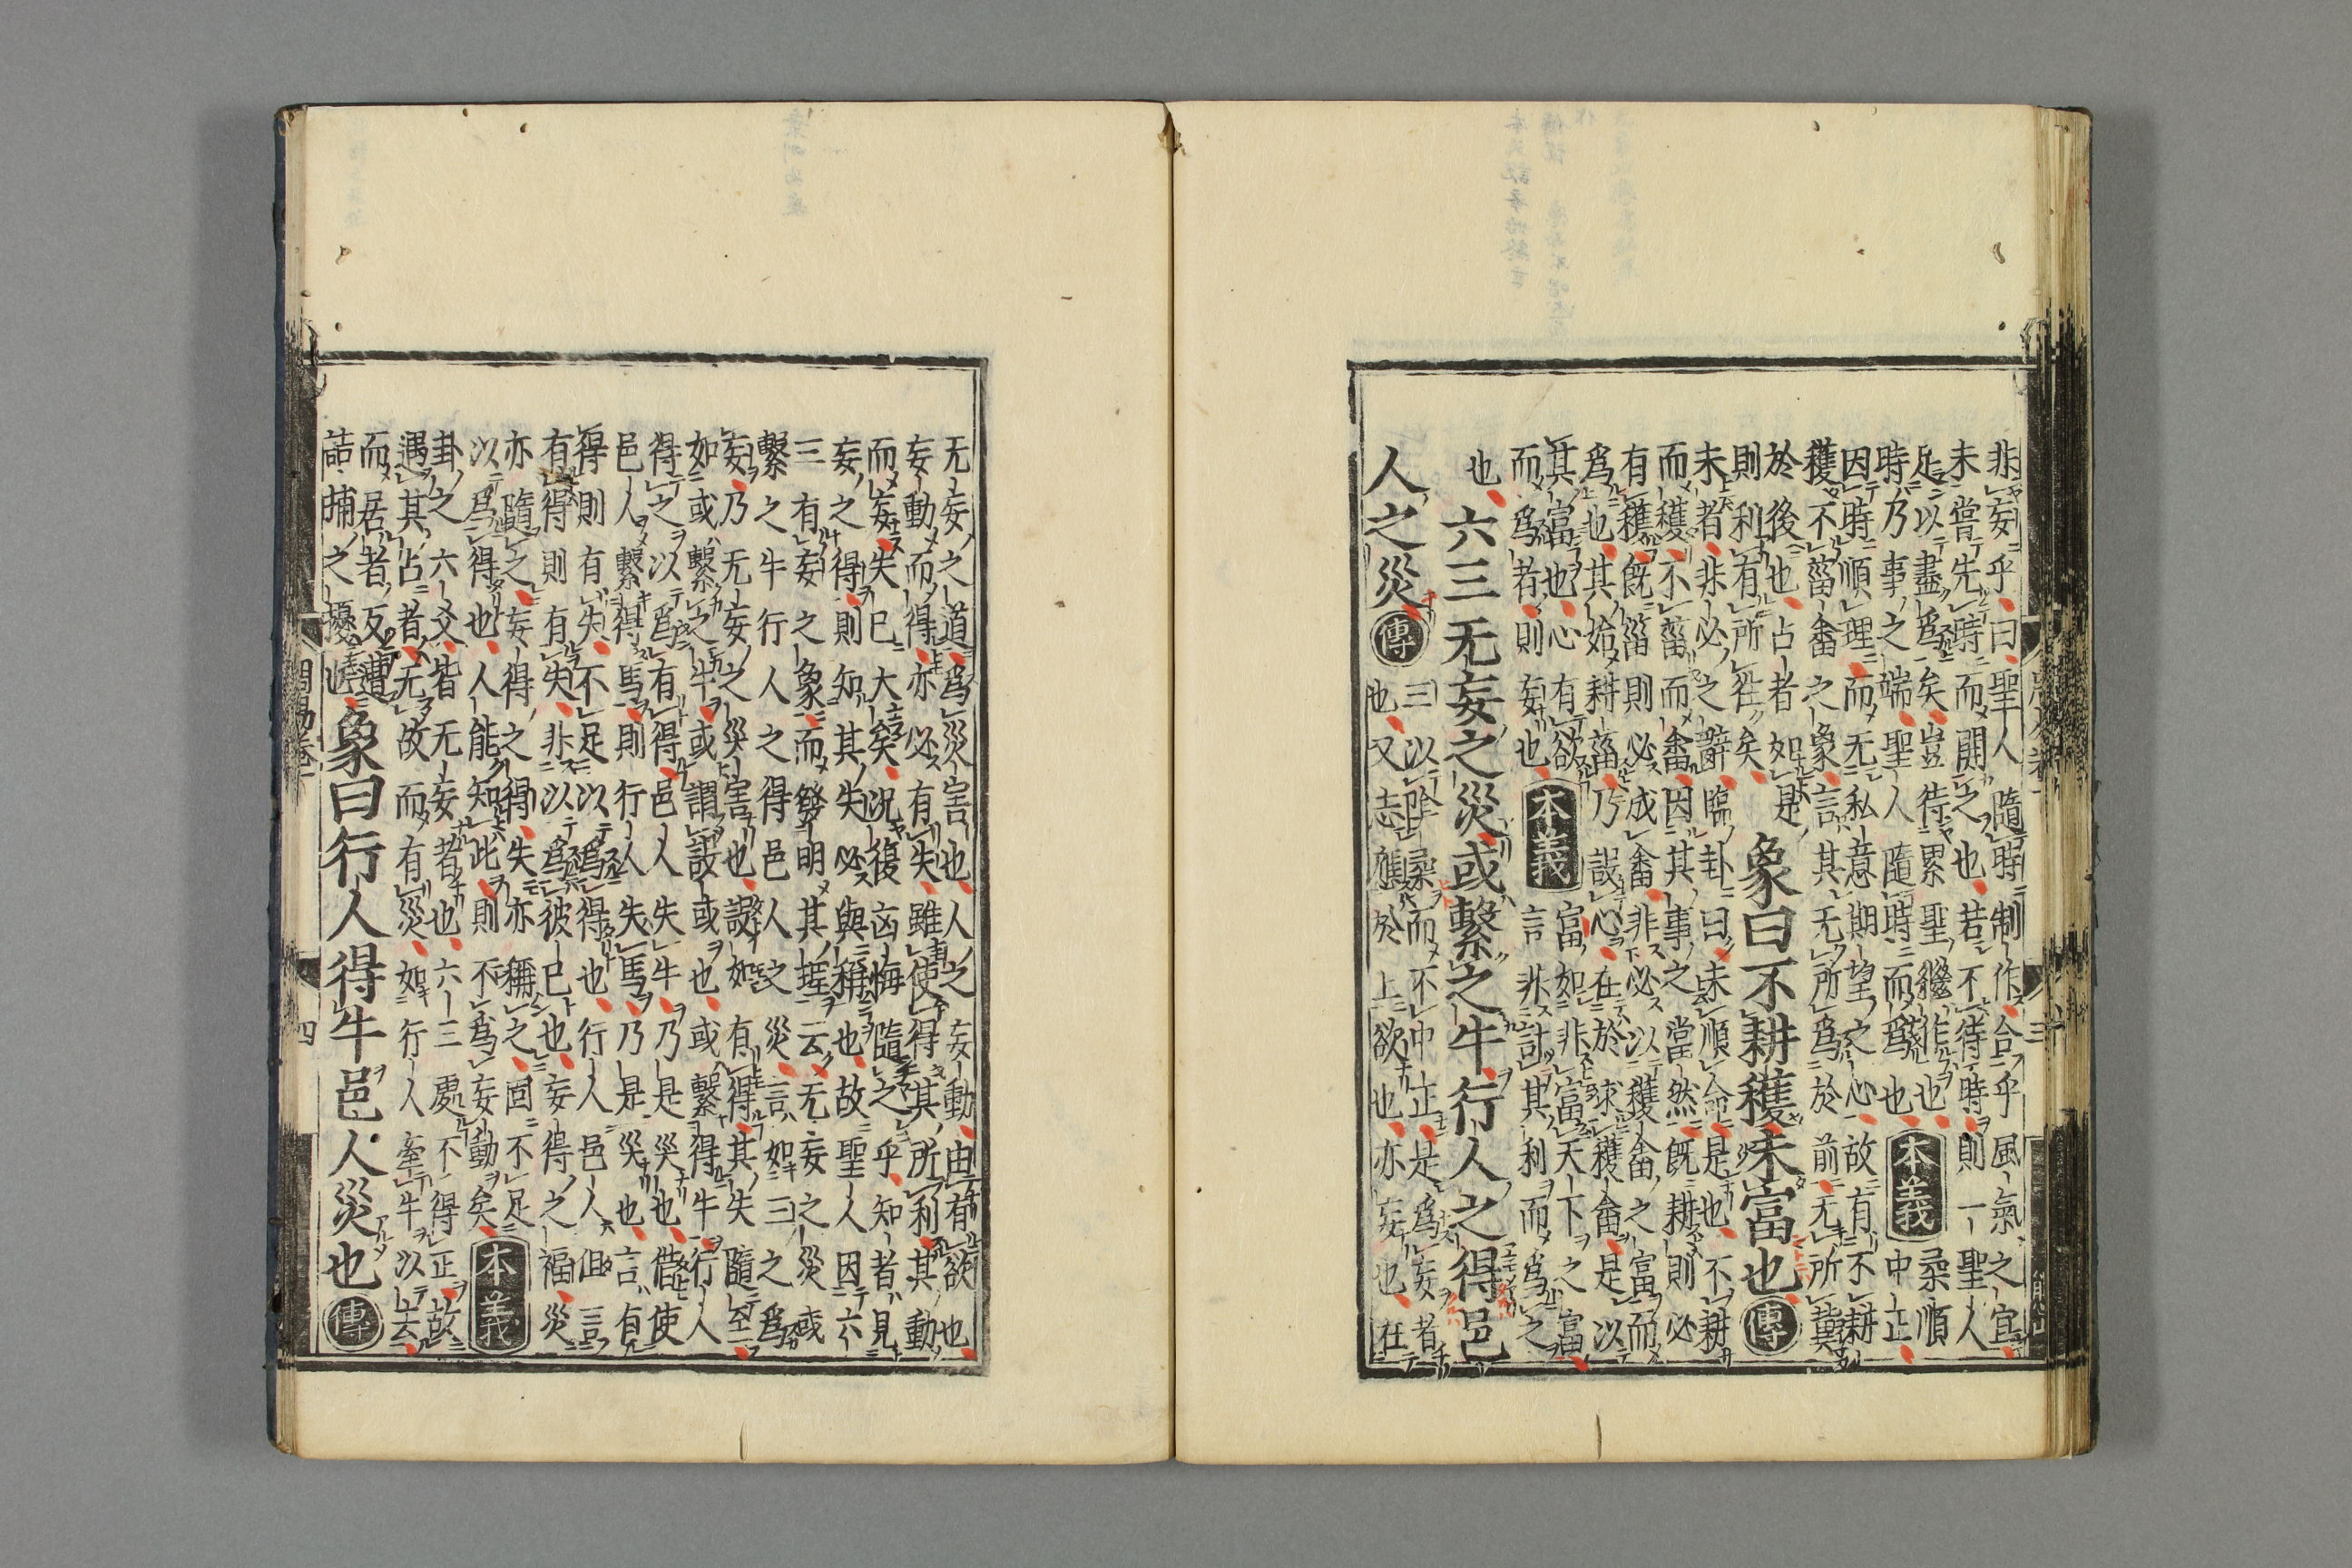 非妄乎曰聖人隨時制作合乎風氣之宜
未嘗先時而開之也若不待時則一聖人
足以盡爲矣豈待累聖繼作也
時乃事之端聖人隨時而爲也本義柔順中正
因時順理而无私意期望之心故有不耕
穫不菑畬之象言其无所爲於前无所冀
於後也占者如是
則利有所往矣象曰不耕穫未富也傳
未者非必之辭臨卦曰未順命是也不耕
而穫不菑而畬因其事之當然既耕則必
有穫既菑則必成畬非必以穫畬之富而
爲也其始耕菑乃設心在於求穫畬是以
其富也心有欲
而爲者則妄也本義富如非富天下之富
言非計其利而爲之
也六三无妄之災或繫之牛行人之得邑
人之災傳三以陰柔而不中正是爲妄者
也又志應於上欲也亦妄也在
无妄之道爲災害也人之妄動由有欲也
妄動而得亦必有失雖使得其所利其動
而妄失已大矣況復凶悔隨之乎知者見
妄之得則知其失必與稱也故聖人因六
三有妄之象而發明其理云无妄之災或
繫之牛行人之得邑人之災言如三之爲
妄乃无妄之災害也設如有得其失隨至
如或繫之牛或謂設或也或繫得牛行人
得之以爲有得邑人失牛乃是災也借使
邑人繫得馬則行人失馬乃是災也言有
得則有失不足以爲得也行人邑人但言
有得則有失非以爲彼已也妄得之福災
亦隨之妄得之得失亦稱之固不足
以爲得也人能知此則不爲妄動矣本義
卦之六爻皆无妄者也六三處不得正故
遇其占者无故而有災如行人牽牛以去
而居者反遭
詰捕之擾也象曰行人得牛邑人災也傳
四